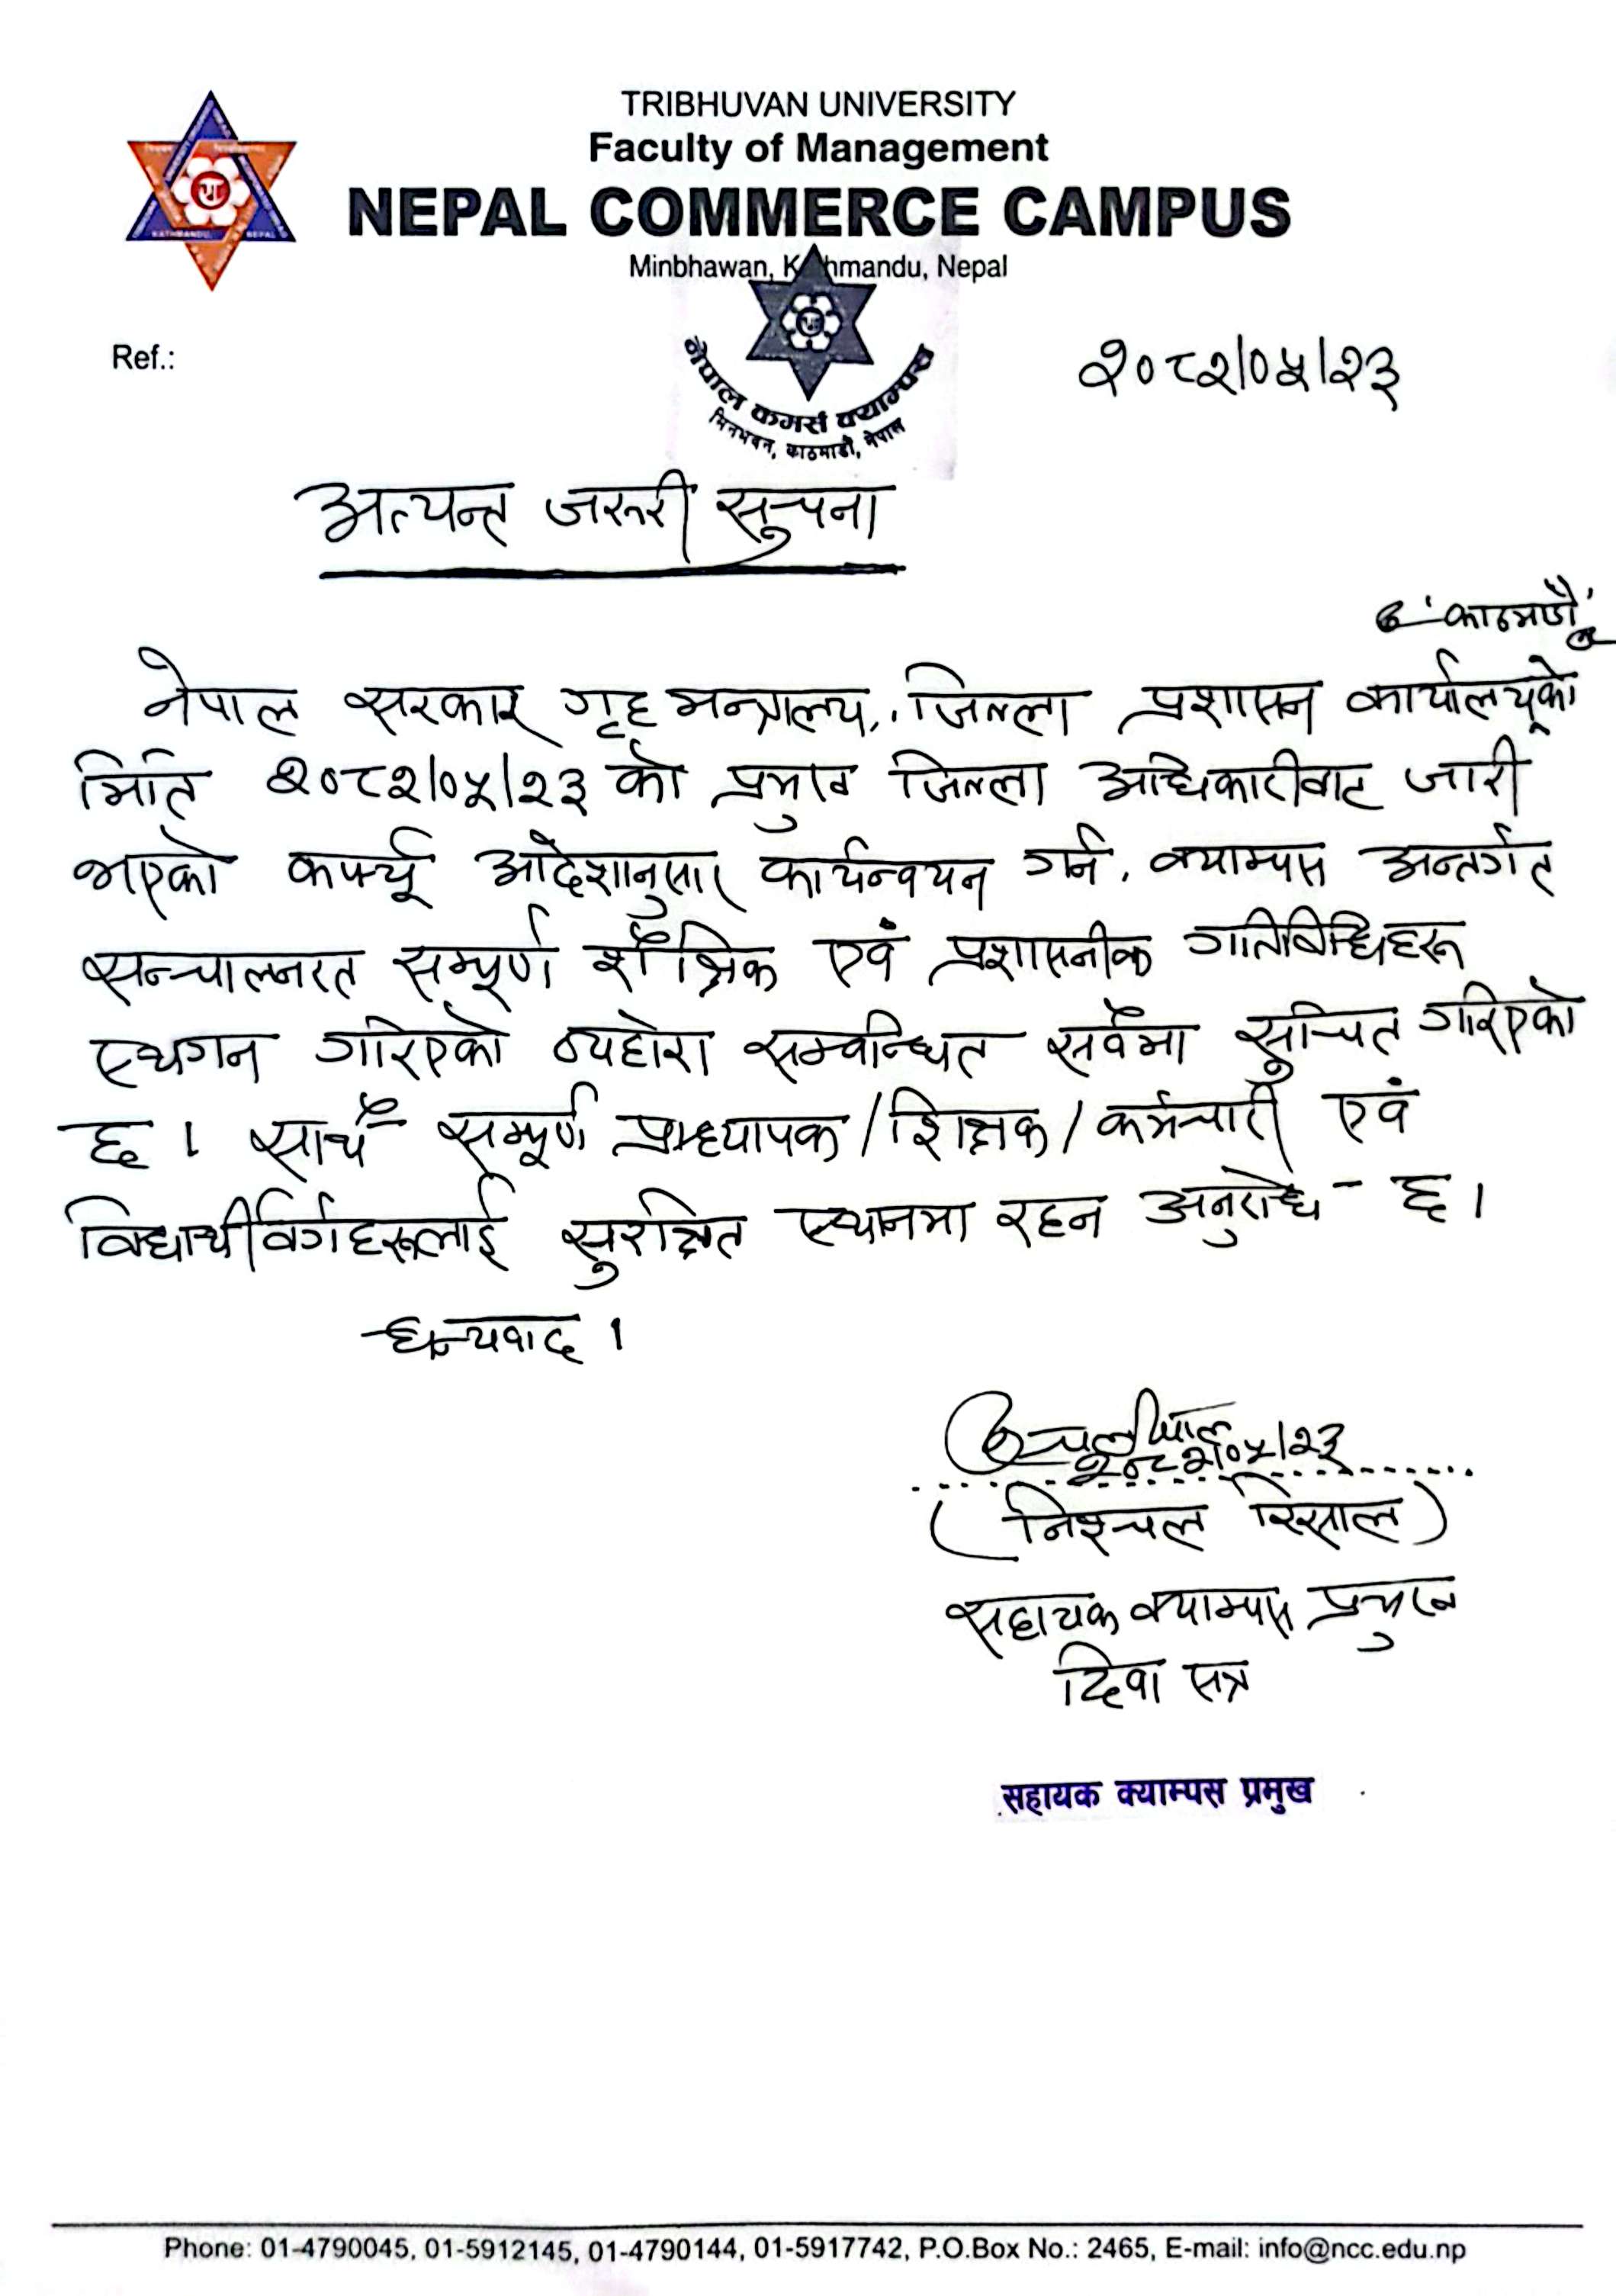 TRIBHUVAN UNIVERSITY
Faculty of Management
NEPAL COMMERCE CAMPUS
Minbhawan, Kathmandu, Nepal
नेपाल कमर्स क्याम्पस
मिनभवन, काठमाडौं, नेपाल
Ref.:
२०८२/०५/२३
अत्यन्त जरुरी सुचना
'काठमाडौं'
नेपाल सरकार गृह मन्त्रालय, जिल्ला प्रशासन कार्यालयको
मिति २०८२/०५/२३ को प्रमुख जिल्ला अधिकारीबाट जारी
भएको कर्फ्यू आदेशानुसार कार्यन्वयन गर्न, क्याम्पस अन्तर्गत
सन्चालनरत सम्पूर्ण शैक्षिक एवं प्रशासनीक गतिबिधिहरू
स्थगन गरिएको व्यहोरा सम्बन्धित सवैमा सुचित गरिएको
छ । साथै सम्पूर्ण प्राध्यापक/शिक्षक/कर्मचारी एवं
विद्यार्थीवर्गहरूलाई सुरक्षित स्थानमा रहन अनुरोध छ ।
धन्यवाद ।
२०८२/०५/२३
(निश्चल रिसाल)
सहायक क्याम्पस प्रमुख
दिवा सत्र
सहायक क्याम्पस प्रमुख
Phone: 01-4790045, 01-5912145, 01-4790144, 01-5917742, P.O.Box No.: 2465, E-mail: info@ncc.edu.np